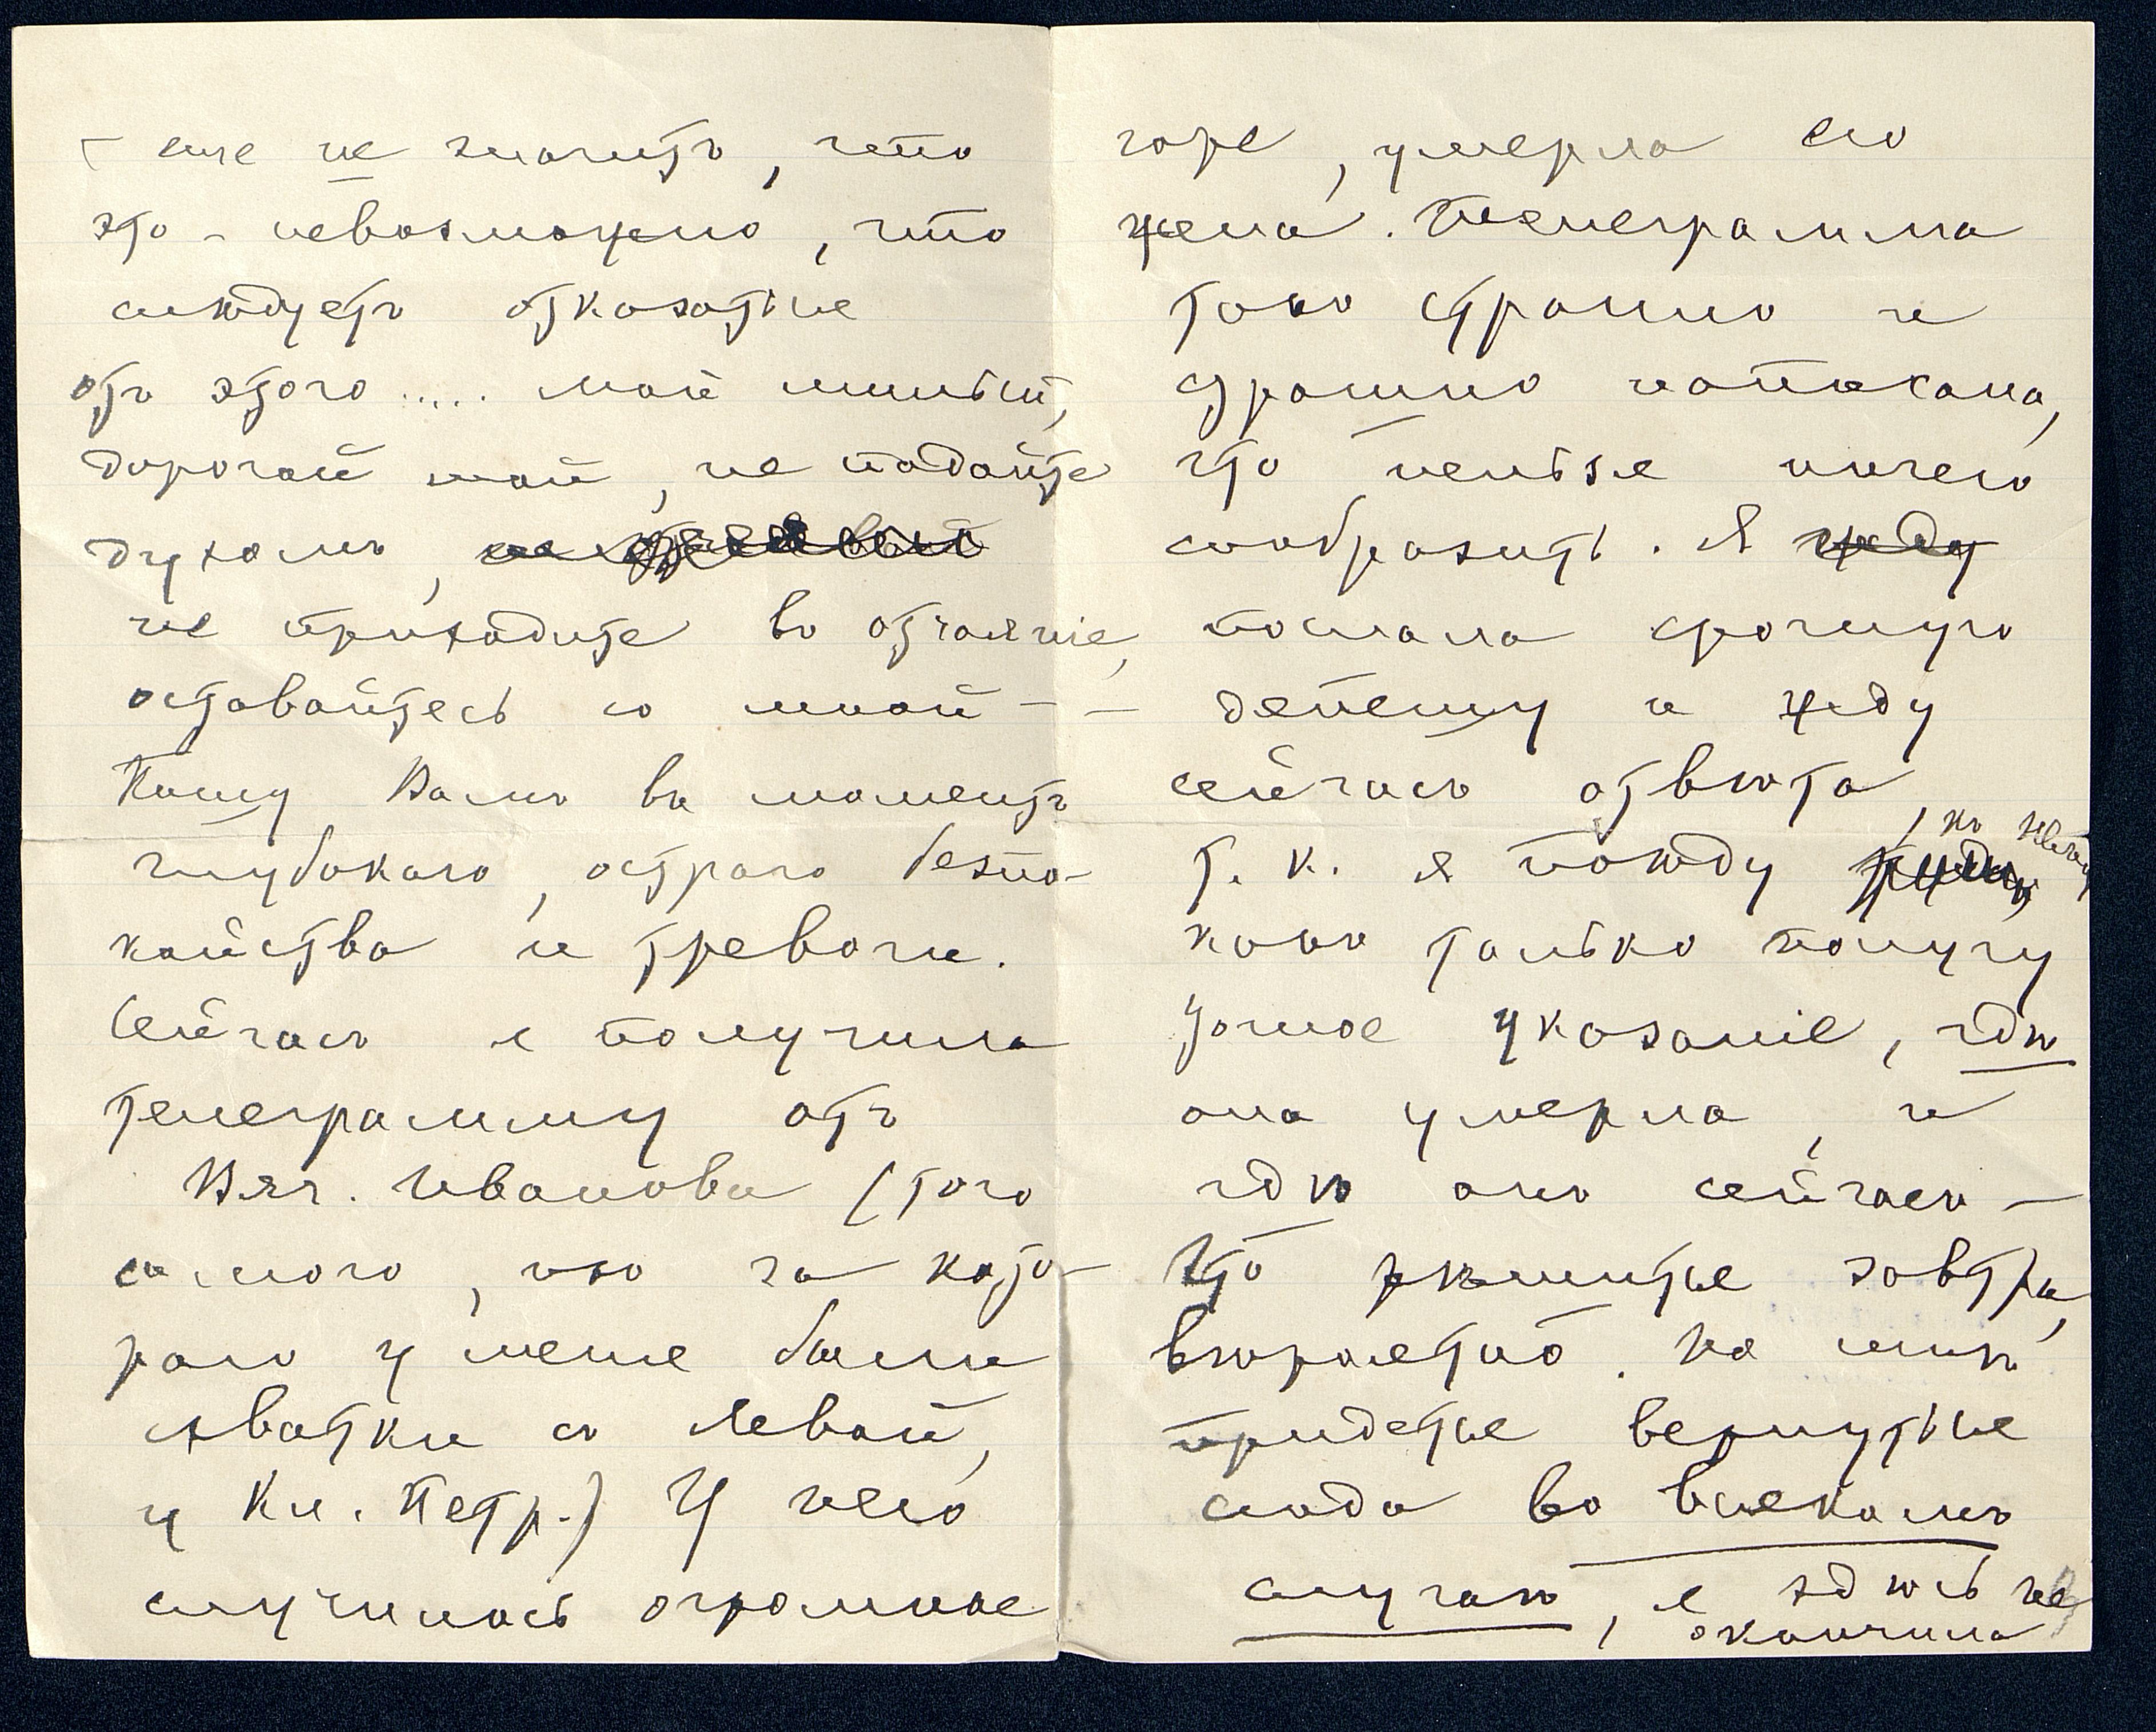 — еще не значитъ, что
это – невозможно, что
слѣдуетъ отказаться
отъ этого ..... мой милый,
дорогой мой, не падайте
духомъ, не
не приходите въ отчаяніе,
оставайтесь со мной —
Пишу Вамъ въ моментъ
глубокаго, остраго безпо-
койства и тревоги.
Сейчасъ я получила
телеграмму отъ
Вяч. Иванова (того
самого, изъ за кото-
раго у меня были
схватки съ Левой,
у Кн. Петр.) У него
случилось огромное
горе, умерла его
жена. Телеграмма
такъ странно и
страшно написана,
что нельзя ничего
сообразить. Я жду
послала срочную
— депешу и жду
сейчасъ отвѣта
, къ нему
т. к. я поѣду
какъ только получу
точное указаніе, гдѣ
она умерла, и
гдѣ онъ сейчасъ —
Что рѣшится завтра,
вѣроятно. Но мнѣ
придется вернуться
сюда во всякомъ
случаѣ, я здѣсь не
окончила